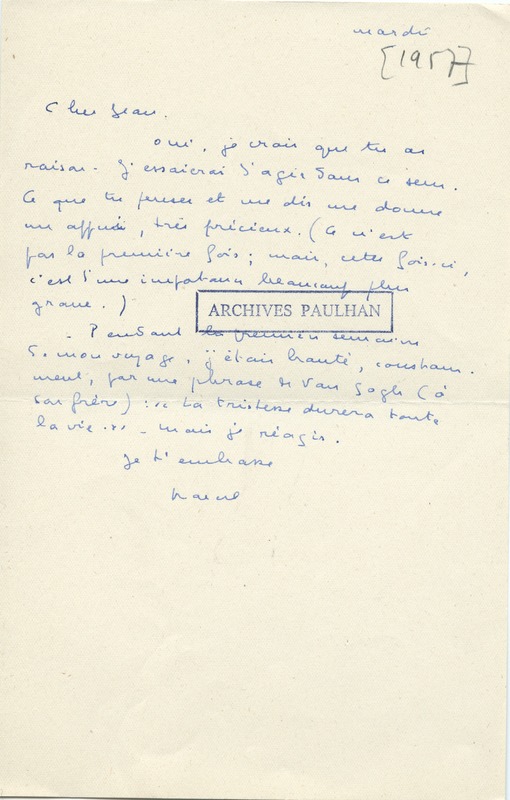 mardi
[1957]
Cher Jean.
oui, je crois que tu as
raison. J'essaierai d'agir dans ce sens.
Ce que tu penses et me dis me donne
un appui, très précieux. (Ce n'est
pas la première fois ; mais, cette fois-ci,
c'est d'une importance beaucoup plus
grave.)
ARCHIVES PAULHAN
- Pendant la première semaine
de mon voyage, j'étais hanté, constam-
ment, par une phrase de Van Gogh (à
son frère) : « La tristesse durera toute
la vie ». - mais je réagis.
je t'embrasse